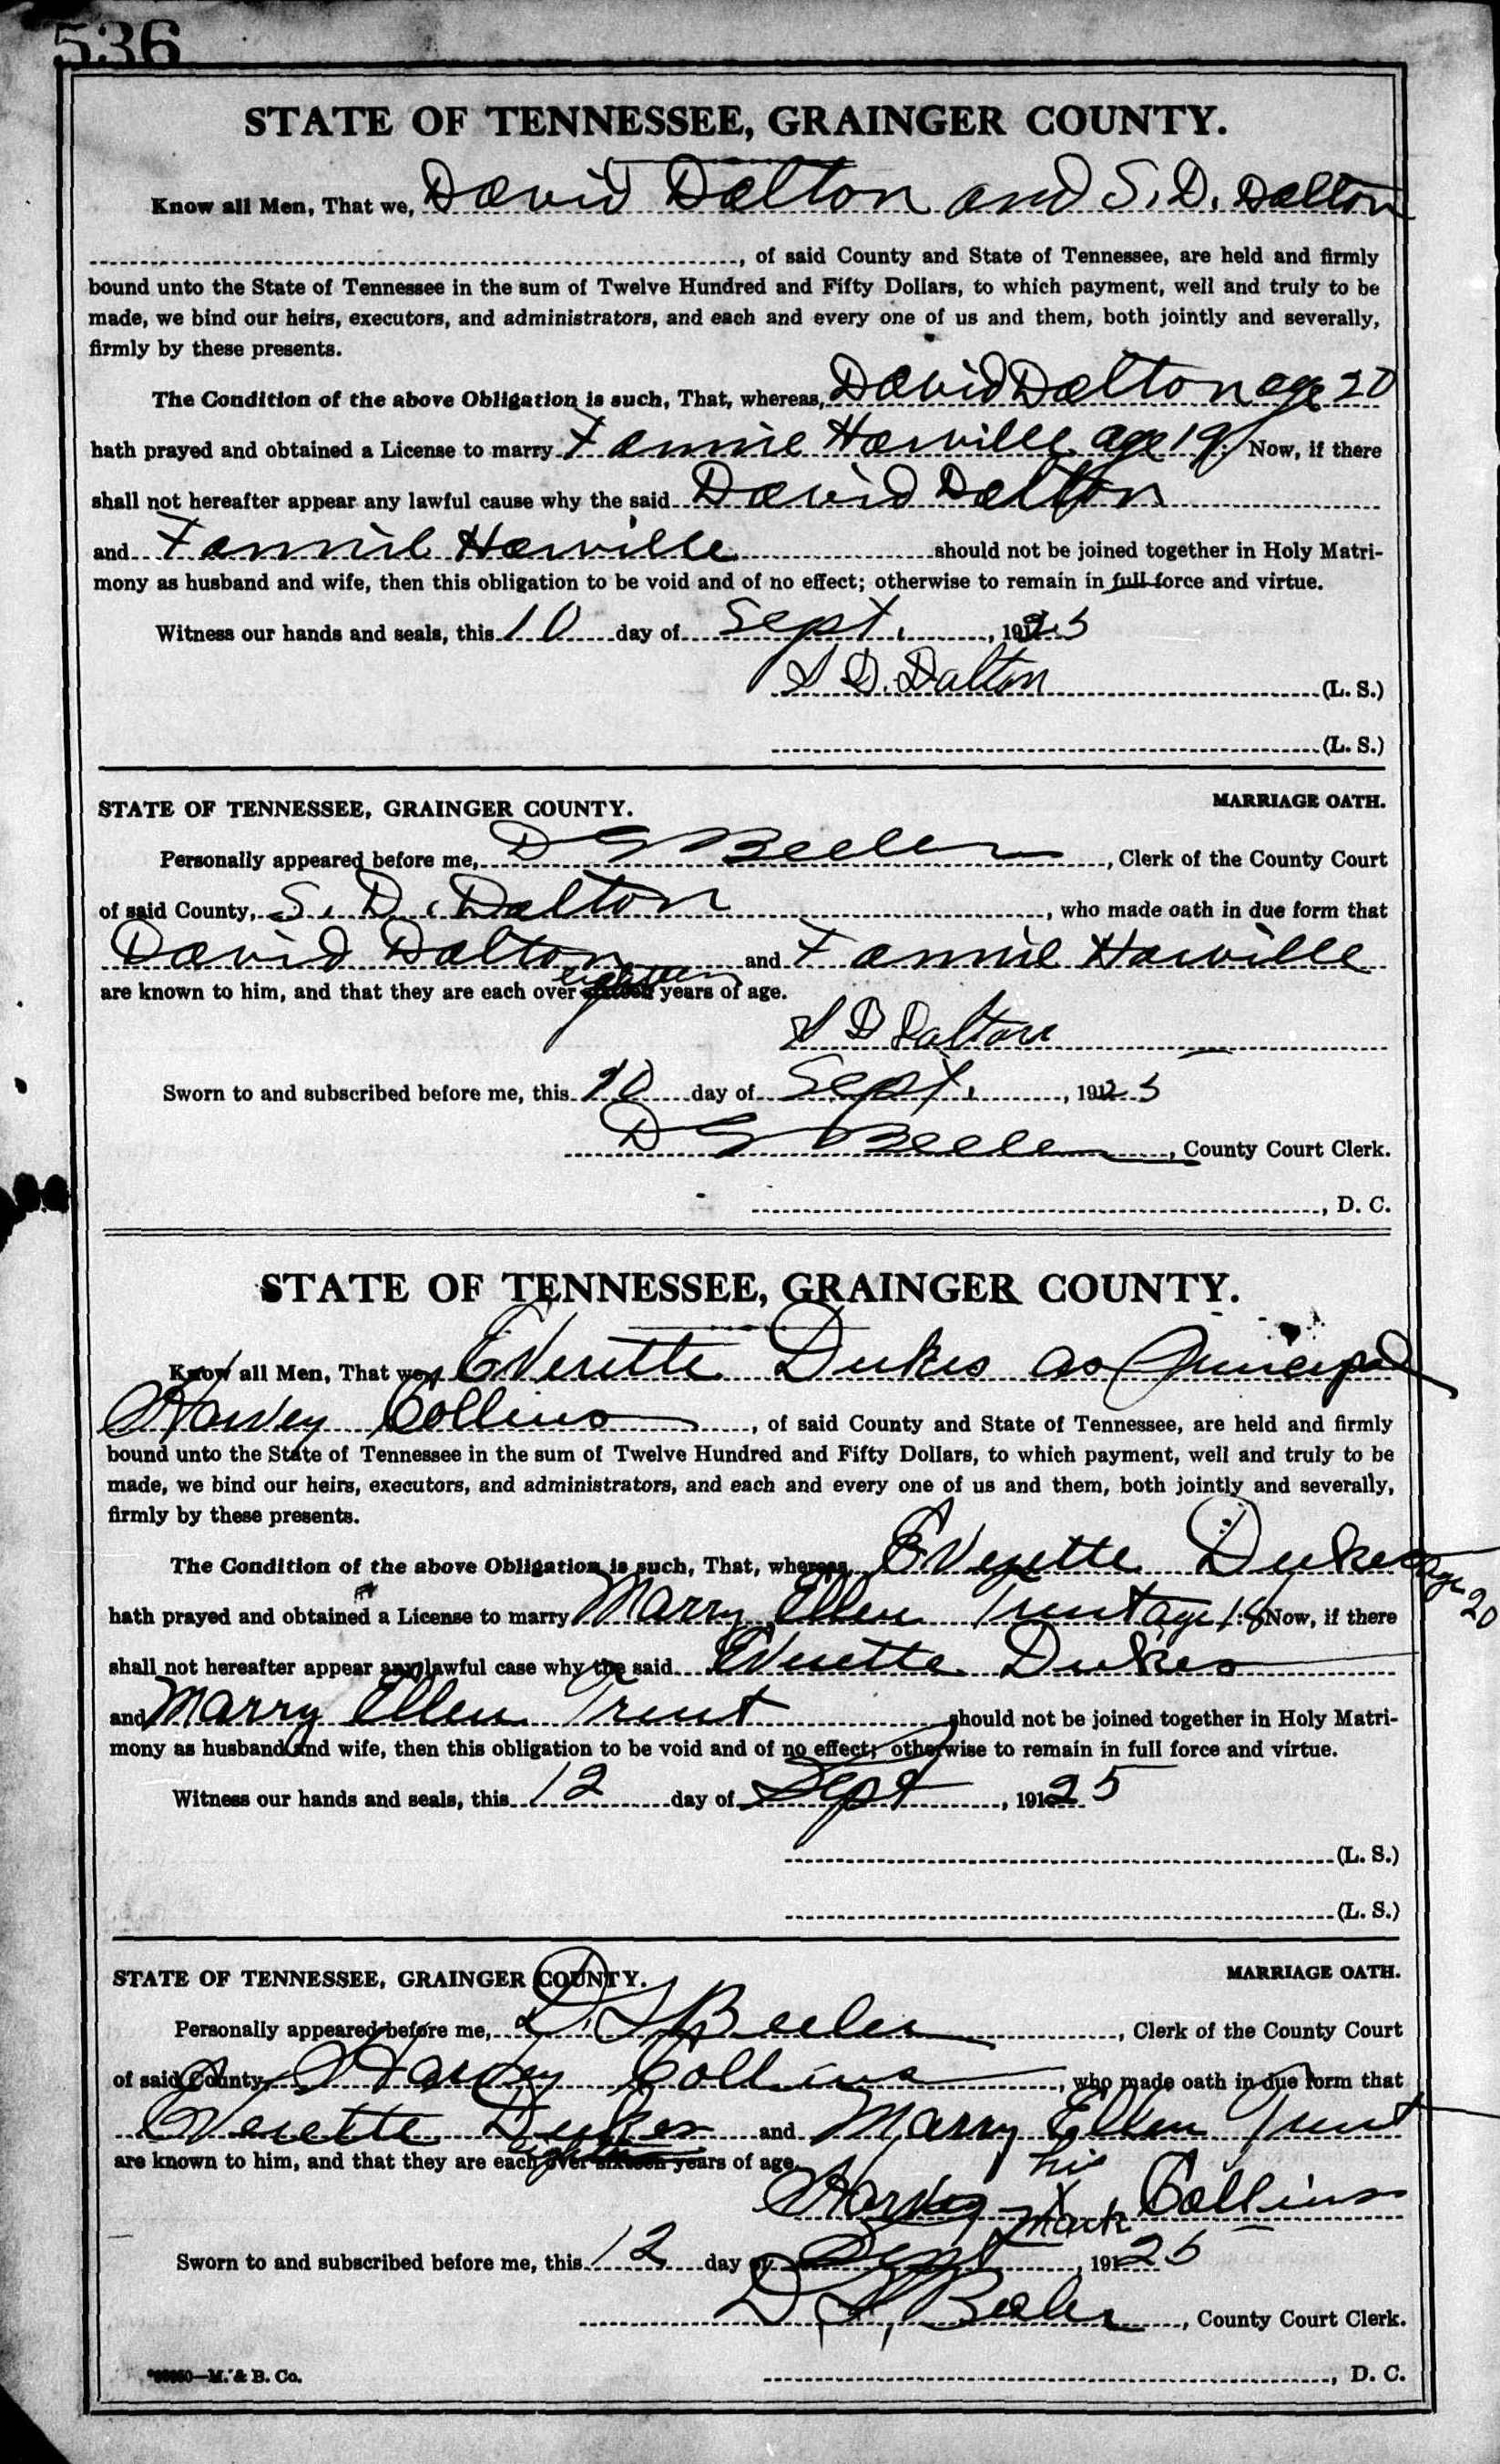 536
STATE OF TENNESSEE, GRAINGER COUNTY.
Know all Men, That we, David Dalton and S. D. Dalton
, of said County and State of Tennessee, are held and firmly
bound unto the State of Tennessee in the sum of Twelve Hundred and Fifty Dollars, to which payment, well and truly to be
made, we bind our heirs, executors, and administrators, and each and every one of us and them, both jointly and severally,
firmly by these presents.
The Condition of the above Obligation is such, That, whereas, David Dalton age 20
hath prayed and obtained a License to marry Fannie Harville age 19. Now, if there
shall not hereafter appear any lawful cause why the said David Dalton
and Fannie Harville should not be joined together in Holy Matri-
mony as husband and wife, then this obligation to be void and of no effect; otherwise to remain in full force and virtue.
Witness our hands and seals, this 10 day of Sept. , 1925
S D. Dalton (L. S.)
(L. S.)
STATE OF TENNESSEE, GRAINGER COUNTY. MARRIAGE OATH.
Personally appeared before me, D G Beeler , Clerk of the County Court
of said County, S. D. Dalton , who made oath in due form that
David Dalton and Fannie Harville
are known to him, and that they are each over eighteen years of age.
S D Dalton
Sworn to and subscribed before me, this 10 day of Sept. , 1925
D G Beeler , County Court Clerk.
, D. C.
STATE OF TENNESSEE, GRAINGER COUNTY.
Know all Men, That we, Everette Dukes as Principal
Harvey Collins , of said County and State of Tennessee, are held and firmly
bound unto the State of Tennessee in the sum of Twelve Hundred and Fifty Dollars, to which payment, well and truly to be
made, we bind our heirs, executors, and administrators, and each and every one of us and them, both jointly and severally,
firmly by these presents.
The Condition of the above Obligation is such, That, whereas, Everette Dukes age 20
hath prayed and obtained a License to marry Marry Ellen Trent age 18 Now, if there
shall not hereafter appear any lawful case why the said Everette Dukes
and Marry Ellen Trent should not be joined together in Holy Matri-
mony as husband and wife, then this obligation to be void and of no effect; otherwise to remain in full force and virtue.
Witness our hands and seals, this 12 day of Sept , 1925
(L. S.)
(L. S.)
STATE OF TENNESSEE, GRAINGER COUNTY. MARRIAGE OATH.
Personally appeared before me, D. G Beeler , Clerk of the County Court
of said County, Harvey Collins , who made oath in due form that
Everette Dukes and Marry Ellen Trent
are known to him, and that they are each over eighteen years of age.
his
Harvey X Collins
mark
Sworn to and subscribed before me, this 12 day of Sept , 1925
D G Beeler , County Court Clerk.
M. & B. Co. , D. C.